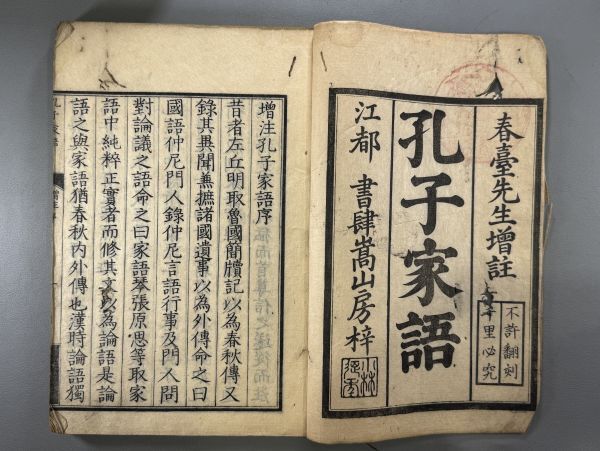 春臺先生增註
不許翻刻
千里必究
孔子家語
江都 書肆嵩山房梓
增注孔子家語序
昔者左丘明取魯國簡牘記以為春秋傳又
錄其異聞兼摭諸國遺事以為外傳命之曰
國語仲尼門人錄仲尼言語行事及門人問
對論議之語命之曰家語琴張原思等取家
語中純粹正實者而修其文以為論語是論
語之與家語猶春秋內外傳也漢時論語獨
孔子家語